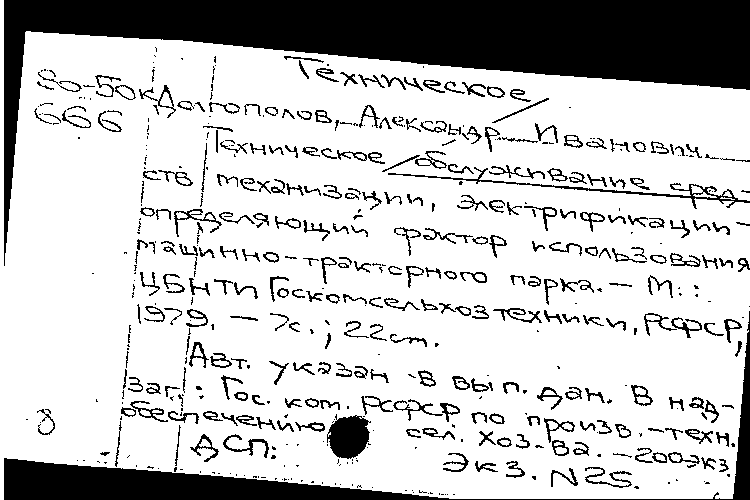 Техническое
80-50к Долгополов, Александр Иванович.
666
Техническое обслуживание сред-
ств механизации, электрификации-
определяющий фактор использования
машинно-тракторного парка. - М.:
ЦБНТИ Госкомсельхозтехники, РСФСР,
1979. - 7с.; 22см.
Авт. указан в вып. дан. В над-
заг.: Гос. ком. РСФСР по произв.-техн.
обеспечению сел. хоз-ва. -200экз.
8 ДСП: Экз. N25.